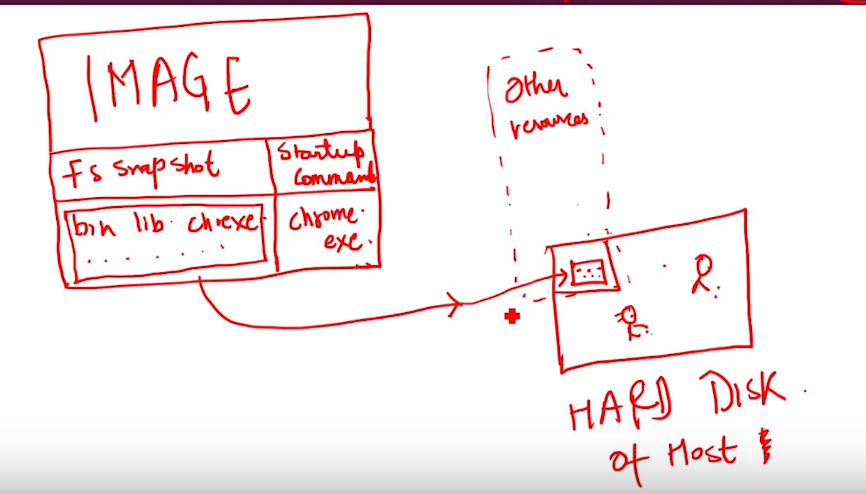 IMAGE
FS snapshot
Startup Command
bin lib chrexe
chrome.exe.
Other resources
HARD DISK.
of Host